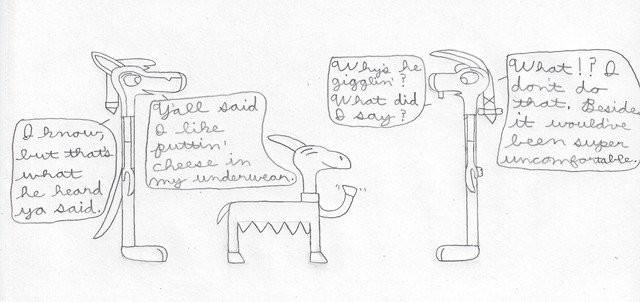 Why's he
gigglin'?
What did
I say?
Y'all said
I like
puttin'
cheese in
my underwear.
What!? I
don't do
that. Beside
it would've
been super
uncomfortable.
I know,
but that's
what
he heard
ya said.